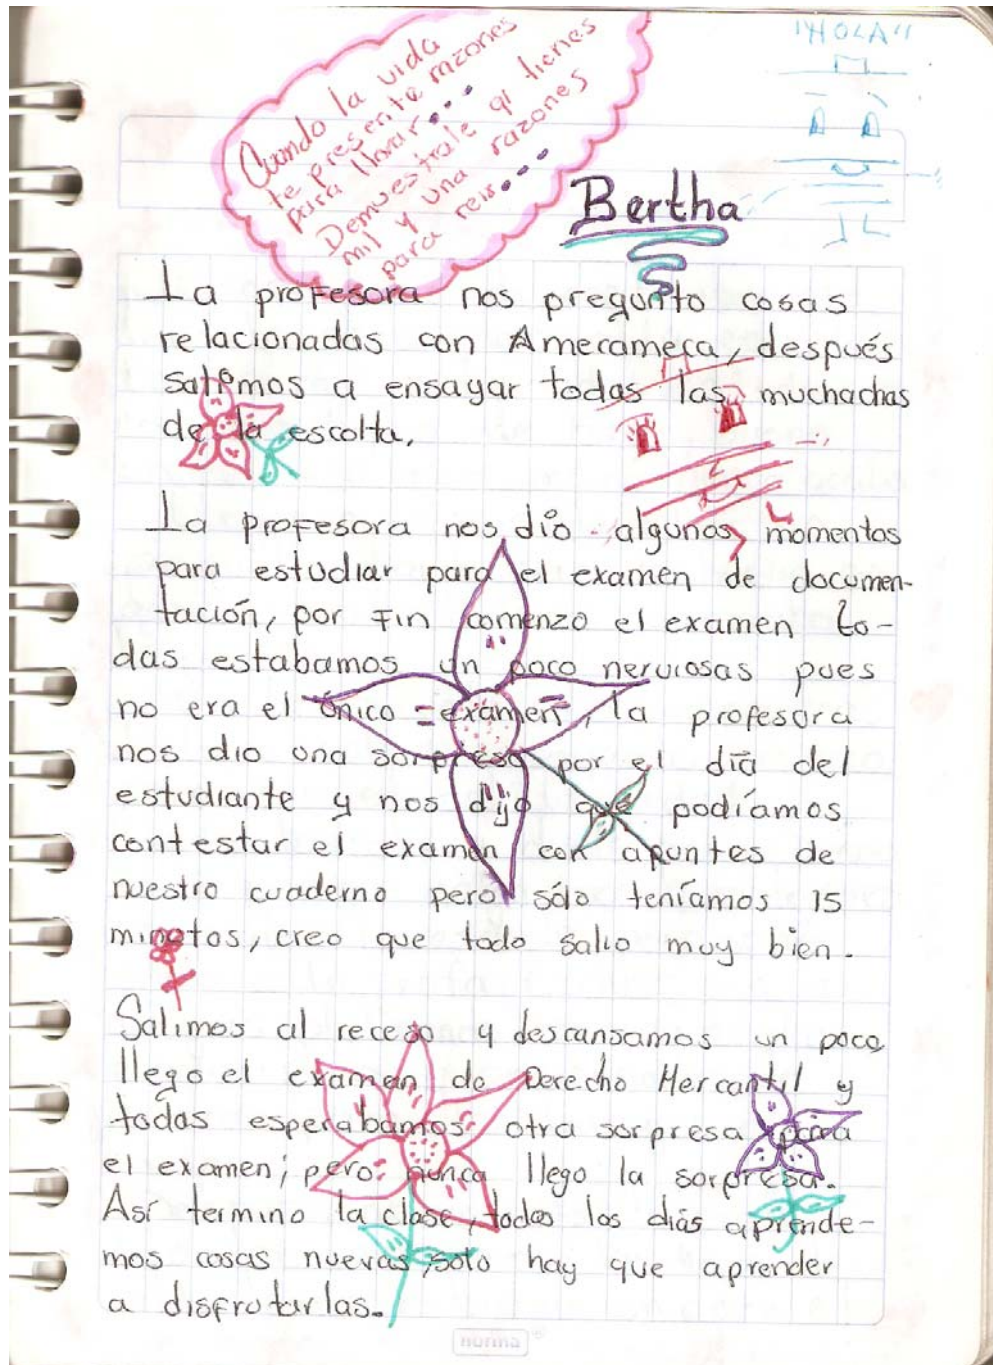 "HOLA"
Cuando la vida
te presente razones
para llorar...
Demuestrale q' tienes
mil y una razones
para reir...
Bertha
La profesora nos pregunto cosas
relacionadas con Amecameca, después
salimos a ensayar todas las muchachas
de la escolta.
La profesora nos dio algunos momentos
para estudiar para el examen de documen-
tación, por fin comenzo el examen to-
das estabamos un poco nerviosas pues
no era el único examen, la profesora
nos dio una sorpresa por el día del
estudiante y nos dijo que podíamos
contestar el examen con apuntes de
nuestro cuaderno pero sólo teníamos 15
minutos, creo que todo salio muy bien.
Salimos al receso y descansamos un poco,
llego el examen de Derecho Mercantil y
todas esperabamos otra sorpresa para
el examen; pero nunca llego la sorpresa.
Así termino la clase, todos los días aprende-
mos cosas nuevas, solo hay que aprender
a disfrutarlas.
norma